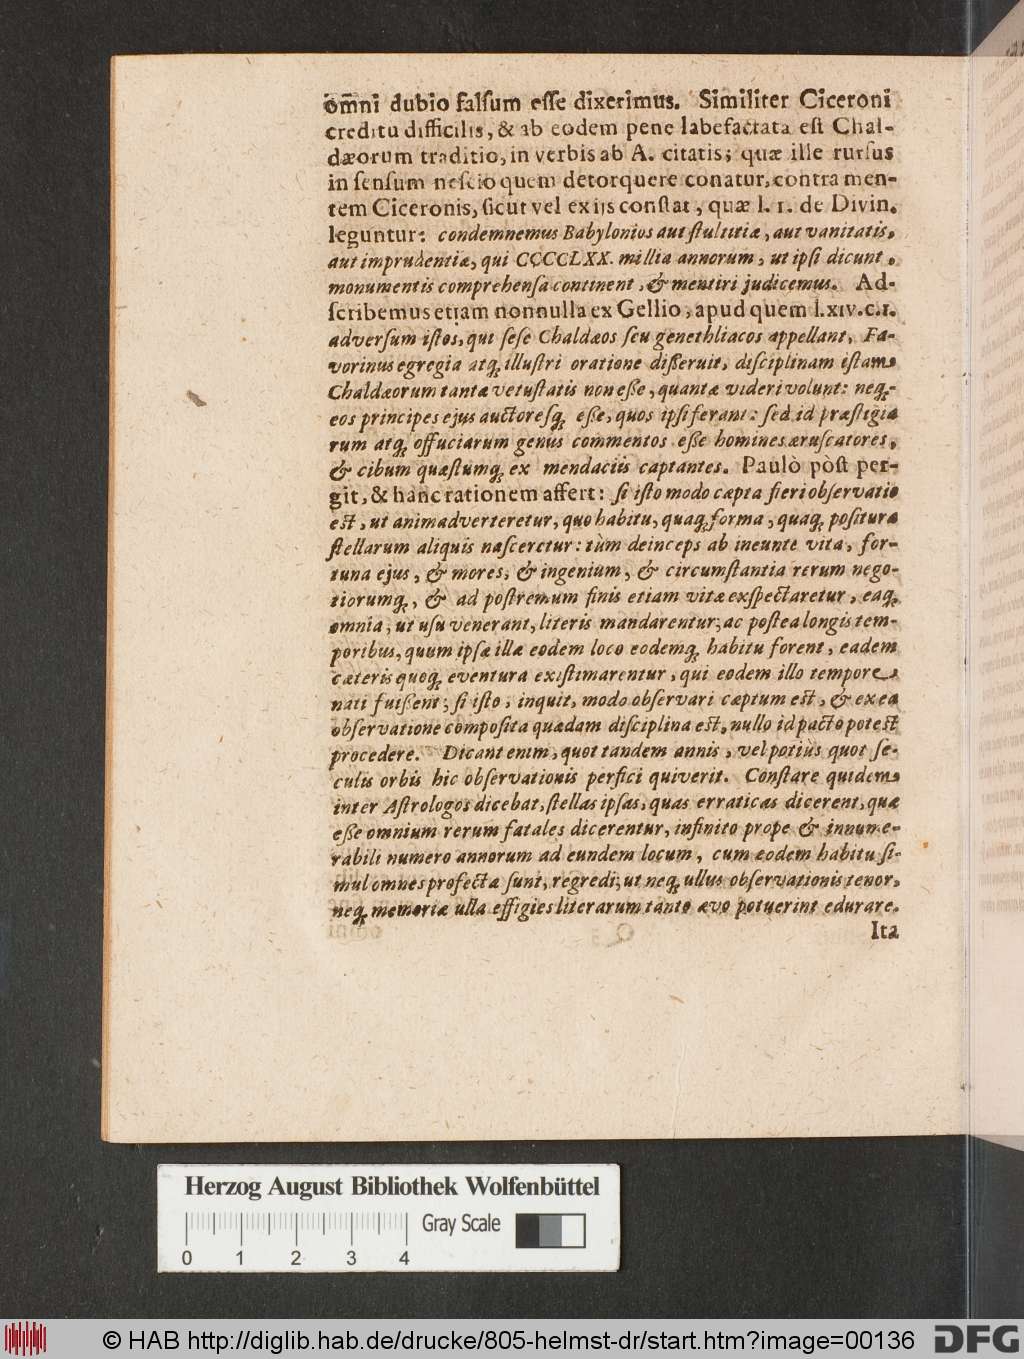 om̃ni dubio falſum eſſe dixerimus. Similiter Ciceroni
creditu difficilis, & ab eodem pene labefactata eſt Chal-
dæorum traditio, in verbis ab A. citatis; quæ ille rurſus
in ſenſum neſcio quem detorquere conatur, contra men-
tem Ciceronis, ſicut vel ex iis conſtat, quæ l. 1. de Divin.
leguntur: condemnemus Babylonios aut ſtultitiæ, aut vanitatis,
aut imprudentiæ, qui CCCCLXX. millia annorum, ut ipſi dicunt,
monumentis comprehenſa continent, & mentiri judicemus. Ad-
ſcribemus etiam nonnulla ex Gellio, apud quem l. xiv. c. 1.
adverſum iſtos, qui ſeſe Chaldæos ſeu genethliacos appellant, Fa-
vorinus egregia atq; illuſtri oratione diſſeruit, diſciplinam iſtam
Chaldæorum tantæ vetuſtatis non eſſe, quantæ videri volunt: neq;
eos principes ejus auctoreſq; eſſe, quos ipſi ferant: ſed id præſtigia
rum atq; offuciarum genus commentos eſſe homines æruſcatores,
& cibum quæſtumq; ex mendaciis captantes. Paulò pòſt per-
git, & hanc rationem affert: ſi iſto modo cæpta fieri obſervatio
eſt, ut animadverteretur, quo habitu, quaq; forma, quaq; poſitura
ſtellarum aliquis naſceretur: tùm deinceps ab ineunte vita, for-
tuna ejus, & mores, & ingenium, & circumſtantia rerum nego-
tiorumq;, & ad poſtremum finis etiam vitæ exſpectaretur, eaq;
omnia, ut uſu venerant, literis mandarentur; ac poſtea longis tem-
poribus, quum ipſæ illæ eodem loco eodemq; habitu forent, eadem
cæteris quoq; eventura exiſtimarentur, qui eodem illo tempore
nati fuiſſent; ſi iſto, inquit, modo obſervari cæptum eſt, & ex ea
obſervatione compoſita quædam diſciplina eſt, nullo id pacto poteſt
procedere. Dicant enim, quot tandem annis, vel potiùs quot ſe-
culis orbis hic obſervationis perfici quiverit. Conſtare quidem
inter Aſtrologos dicebat, ſtellas ipſas, quas erraticas dicerent, quæ
eſſe omnium rerum fatales dicerentur, infinito prope & innume-
rabili numero annorum ad eundem locum, cum eodem habitu ſi-
mul omnes profectæ ſunt, regredi; ut neq; ullus obſervationis tenor,
neq; memoriæ ulla effigies literarum tanto ævo potuerint edurare.
Ita
Herzog August Bibliothek Wolfenbüttel
Gray Scale
0 1 2 3 4
© HAB http://diglib.hab.de/drucke/805-helmst-dr/start.htm?image=00136
DFG